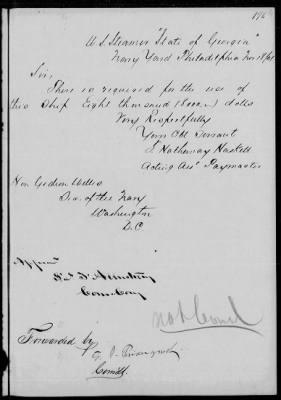 U.S. Steamer "State of Georgia"
Navy Yard Philadelphia Nov 18/61
Sir,
There is required for the use of
this Ship Eight thousand (8000.) dolls
Very Respectfully
Your Obt Servant
J Hathaway Haskell
Acting Asst Paymaster
Hon Gideon Welles
Sec. of the Navy
Washington
D.C
Forwarded by
Comdt.